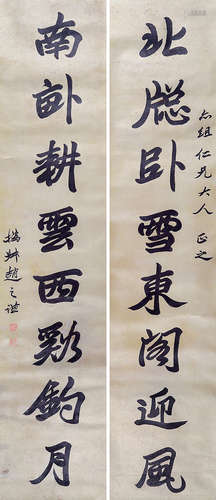 北牕卧雪東閣迎風
志組仁兄大人 正之
南畝耕雲西谿釣月
撝叔趙之謙